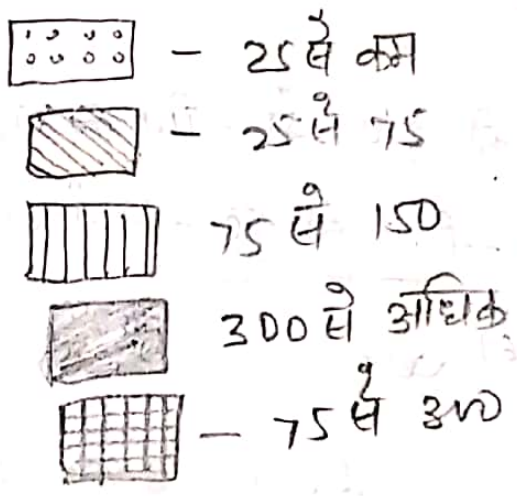 – 25 से कम
– 25 से 75
75 से 150
300 से अधिक
– 75 से 300